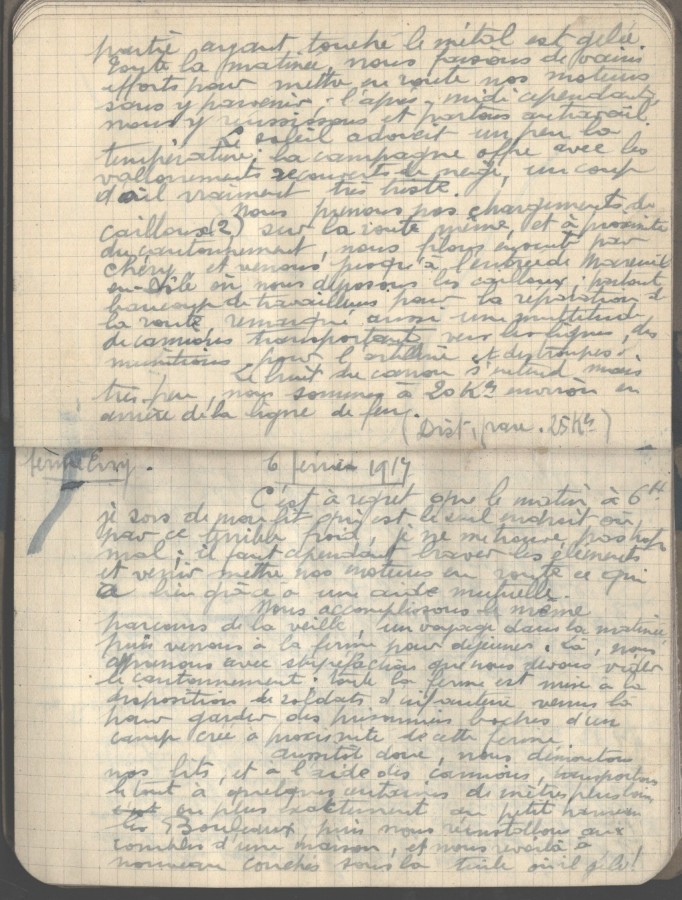 partie ayant touché le métal est gelée
Toute la matinée, nous faisons de vains
efforts pour mettre en route nos moteurs
sans y parvenir. l'après-midi cependant,
nous y réussissons et partons au travail.
Le soleil adoucit un peu la
température; la campagne offre avec les
vallonnements recouverts de neige, un coup
d'œil vraiment très triste.
Nous prenons nos chargements de
cailloux (2) sur la route même, et à proximité
du cantonnement, nous filons ensuite par
Chéry et venons jusqu'à l'entrée de Mareuil
en-Dôle où nous déposons les cailloux; partout
beaucoup de travailleurs pour la réparation de
la route, remarqué aussi une multitude
de camions transportant vers les lignes, des
munitions pour l'artillerie et des troupes.
Le bruit du canon s'entend mais
très peu, nous sommes à 20 Kms environ en
arrière de la ligne de feu.
(Dist. parc. 25 Kms)
ferme . 6 Février 1917
C'est à regret que le matin à 6H
je sors de mon lit qui est le seul endroit où,
par ce terrible froid, je ne me trouve pas trop
mal; il faut cependant braver les éléments
et venir mettre nos moteurs en route ce qui
a lieu grâce à une aide mutuelle.
Nous accomplissons le même
parcours de la veille, un voyage dans la matinée
puis venons à la ferme pour déjeuner. Là, nous
apprenons avec stupéfaction que nous devons vider
le cantonnement: toute la ferme est mise à la
disposition de soldats d'infanterie venus là
pour garder des prisonniers boches d'un
camp créé à proximité de cette ferme
Aussitôt donc, nous démontons
nos lits, et à l'aide des camions, transportons
le tout à quelques centaines de mètres plus loin
ou plus exactement au petit hameau
les Bouleaux, puis nous réinstallons aux
combles d'une maison, et nous revoilà à
nouveau couchés sous la tuile où il gèle!